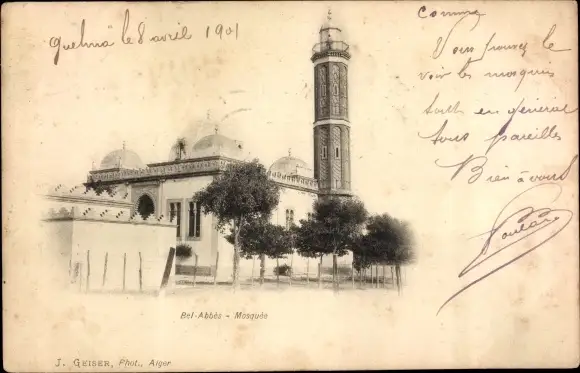 Guelma le 8 avril 1901
Comme
Vous pouvez le
voir les mosquées
sont en général
tous pareilles
Bien à vous
Bel-Abbès - Mosquée
J. GEISER, Phot., Alger